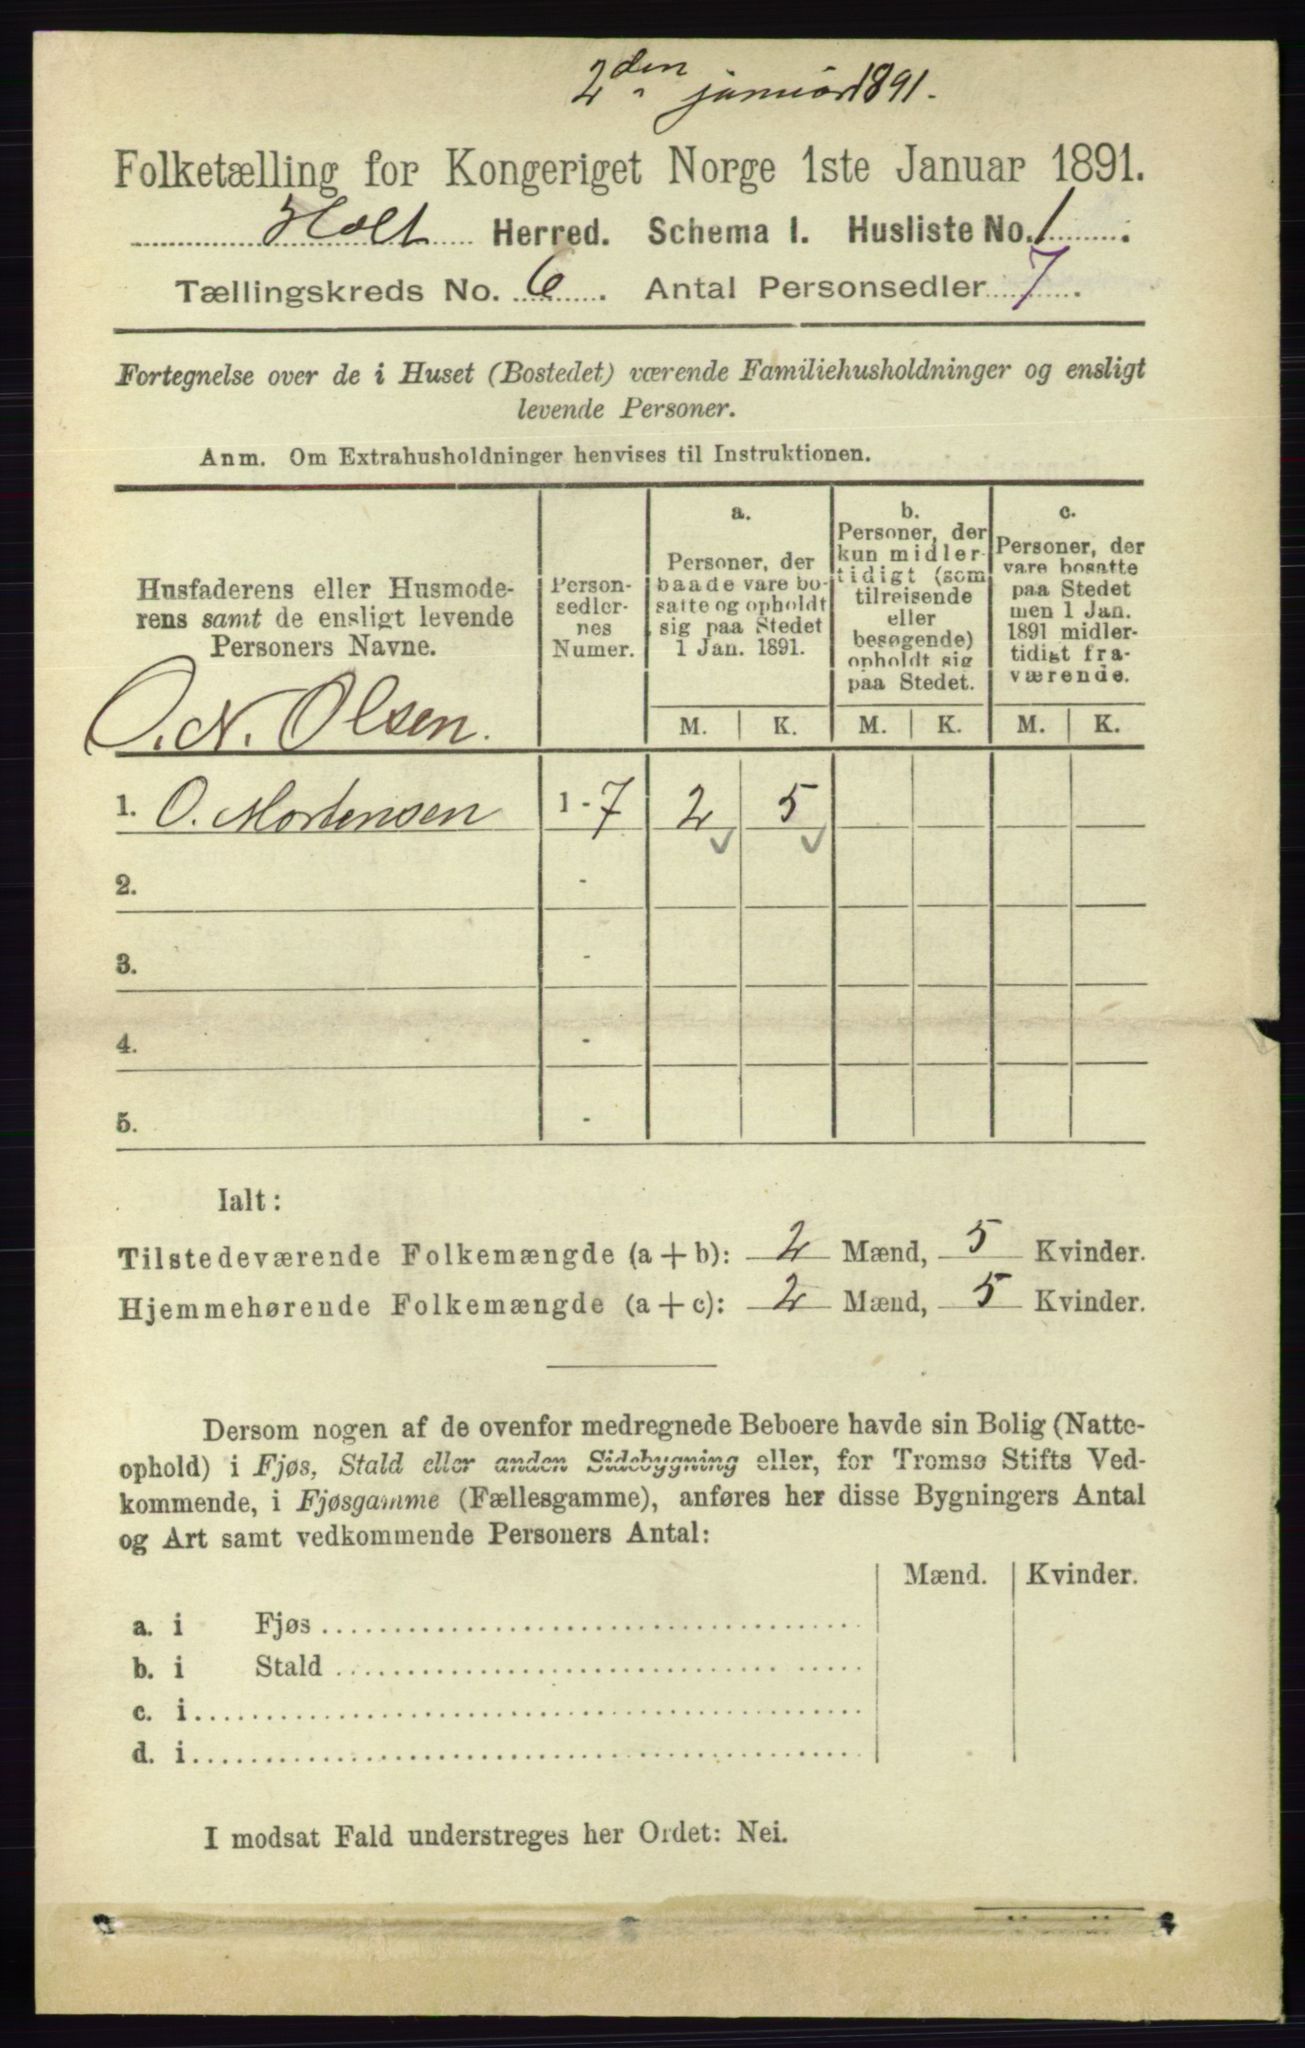 2den januar 1891.
Folketælling for Kongeriget Norge 1ste Januar 1891.
Holt Herred. Schema I. Husliste No. 1.
Tællingskreds No. 6. Antal Personsedler 7.
Fortegnelse over de i Huset (Bostedet) værende Familiehusholdninger og ensligt
levende Personer.
Anm. Om Extrahusholdninger henvises til Instruktionen.
Husfaderens eller Husmode-
rens samt de ensligt levende
Personers Navne.
O. N. Olsen.
Person-
sedler-
nes
Numer.
a.
Personer, der
baade vare bo-
satte og opholdt
sig paa Stedet
1 Jan. 1891.
b.
Personer, der
kun midler-
tidigt (som
tilreisende
eller
besøgende)
opholdt sig
paa Stedet.
c.
Personer, der
vare bosatte
paa Stedet
men 1 Jan.
1891 midler-
tidigt fra-
værende.
M. K. M. K. M. K.
1. O. Mortensen 1 - 7 2 5
2. -
3. -
4. -
5. -
Ialt:
Tilstedeværende Folkemængde (a + b): 2 Mænd, 5 Kvinder.
Hjemmehørende Folkemængde (a + c): 2 Mænd, 5 Kvinder.
Dersom nogen af de ovenfor medregnede Beboere havde sin Bolig (Natte-
ophold) i Fjøs, Stald eller anden Sidebygning eller, for Tromsø Stifts Ved-
kommende, i Fjøsgamme (Fællesgamme), anføres her disse Bygningers Antal
og Art samt vedkommende Personers Antal:
Mænd. Kvinder.
a. i Fjøs
b. i Stald
c. i
d. i
I modsat Fald understreges her Ordet: Nei.